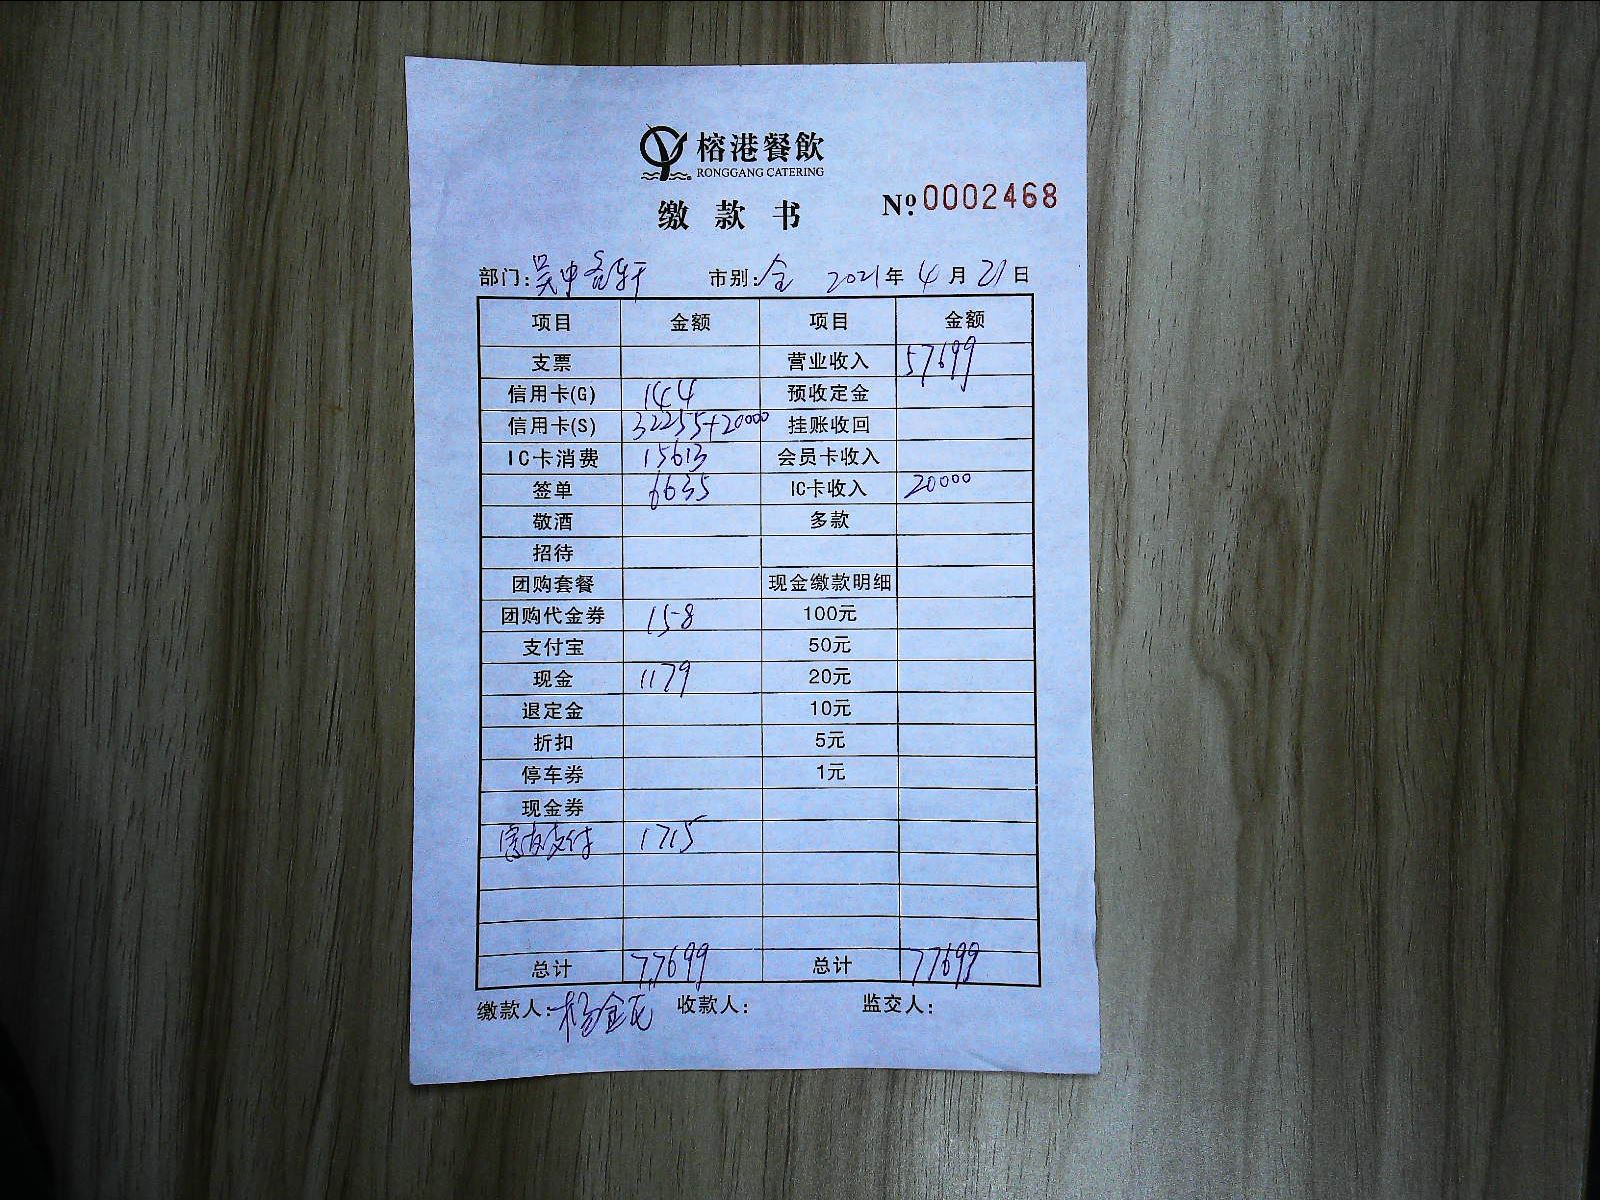 榕港餐飲
RONGGANG CATERING
缴款书 Nº.0002468
部门:吴中 轩 市别:全 2021年4月21日
项目 金额 项目 金额
支票 营业收入 57699
信用卡(G) 144 预收定金
信用卡(S) 32255+20000 挂账收回
IC卡消费 15613 会员卡收入
签单 6635 IC卡收入 20000
敬酒 多款
招待
团购套餐 现金缴款明细
团购代金券 158 100元
支付宝 50元
现金 1179 20元
退定金 10元
折扣 5元
停车券 1元
现金券
支付 1715
总计 77699 总计 77699
缴款人:杨金 收款人: 监交人: